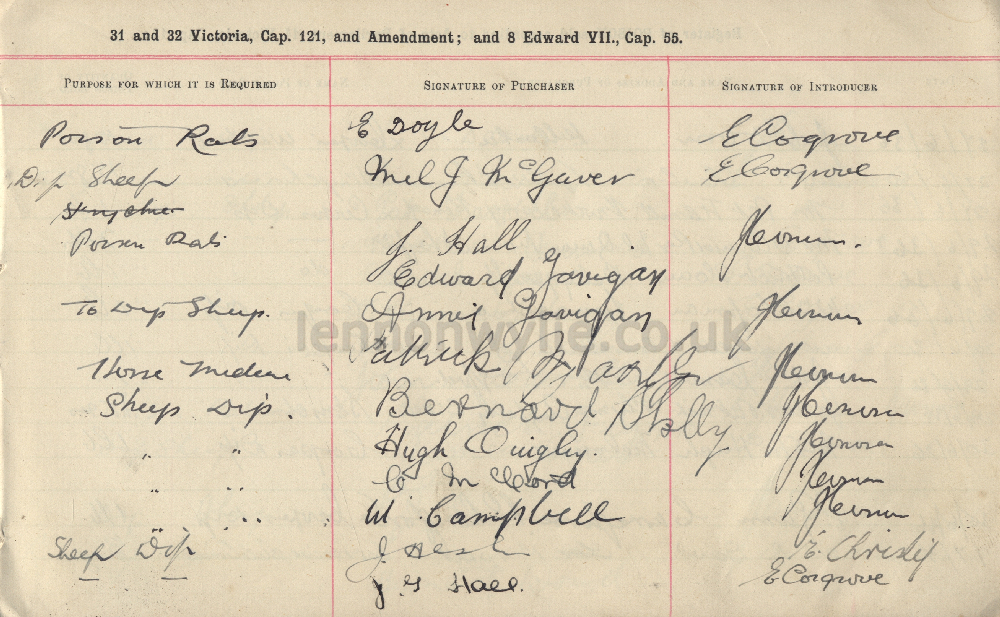 31 and 32 Victoria, Cap. 121, and Amendment; and 8 Edward VII., Cap. 55.
Purpose for which it is Required Signature of Purchaser Signature of Introducer
Poison Rats E Doyle E Cosgrove
Dip Sheep Mel J McGaver E Cosgrove
Poison Rats J. Hall
Edward Gavigan
To Dip Sheep. Annie Gavigan
lennonwylie.co.uk
Horse Patrick
Sheep Dip. Bernard Skelly
" " Hugh Quigley.
" " C McCord
" " W. Campbell
Sheep Dip J E. Christy
J G Hall. E Cosgrove